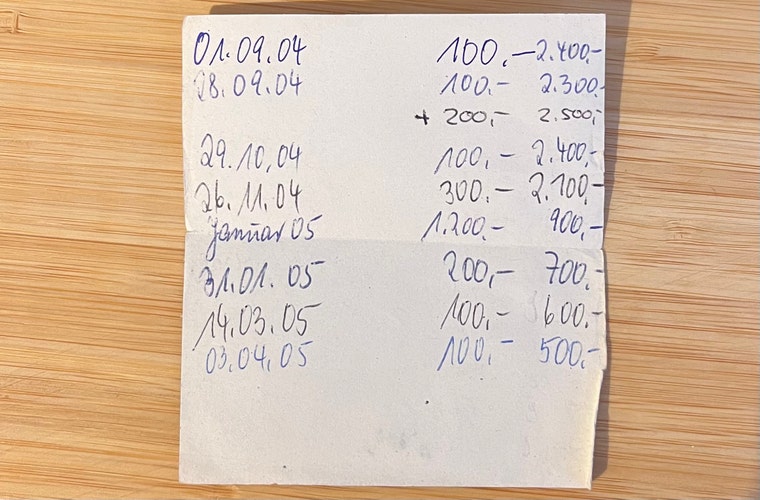 01.09.04 100.- 2.400.-
28.09.04 100.- 2.300.-
+ 200,- 2.500,-
29.10.04 100,- 2.400.-
26.11.04 300.- 2.100,-
Januar 05 1.200.- 900,-
31.01.05 200,- 700.-
14.03.05 100,- 600.-
03.04.05 100,- 500,-